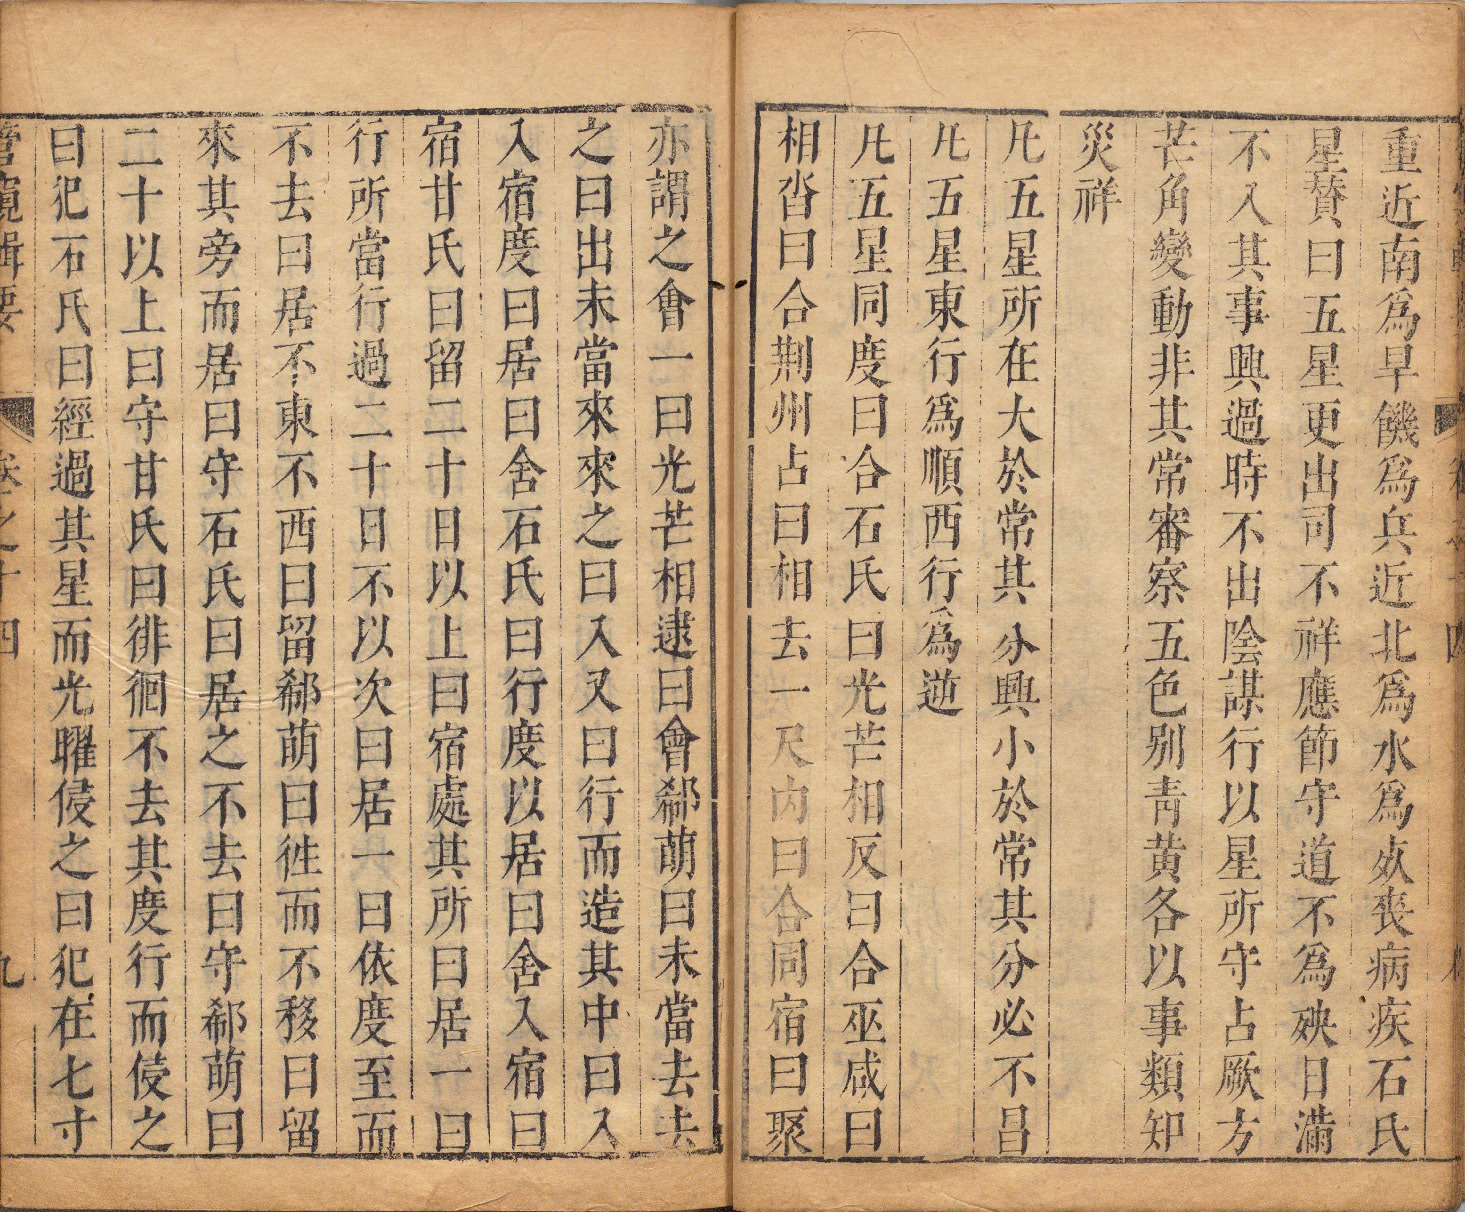 重近南爲旱饑爲兵近北爲水爲灾喪病疾石氏
星賛曰五星更出司不祥應節守道不爲殃日滿
不入其事興過時不出陰謀行以星所守占厥方
芒角變動非其常審察五色别靑黄各以事類知
災祥
凡五星所在大於常其分興小於常其分必不昌
凡五星東行爲順西行爲逆
凡五星同度曰合石氏曰光芒相反曰合巫咸曰
相沓曰合荆州占曰相去一尺内曰合同宿曰聚
亦謂之會一曰光芒相逮曰會郗萌曰未當去去
之曰出未當來來之曰入又曰行而造其中曰入
入宿度曰居曰舍石氏曰行度以居曰舍入宿曰
宿甘氏曰留二十日以上曰宿處其所曰居一曰
行所當行過二十日不以次曰居一曰依度至而
不去曰居不東不西曰留郗萌曰徃而不移曰留
來其旁而居曰守石氏曰居之不去曰守郗萌曰
二十以上曰守甘氏曰徘徊不去其度行而侵之
曰犯石氏曰經過其星而光耀侵之曰犯在七寸
管窺輯要 卷之十四 九